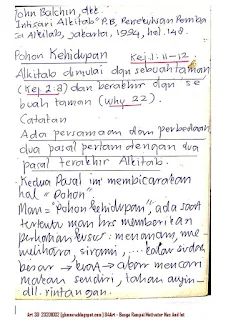 John Balchin, dkk.
Intisari Alkitab P.B, Persekutuan Pembaca
Alkitab, Jakarta, 1994, hal. 148.
Pohon Kehidupan Kej. 1: 11-12
Alkitab dimulai dgn sebuah taman
(Kej 2:8) dan berakhir dgn se
buah taman (Why 22).
Catatan
Ada persamaan dan perbedaan
dua pasal pertama dengan dua
pasal terakhir Alkitab.
Kedua Pasal ini membicarakan
hal "Pohon"
Mau "Pohon kehidupan", ada saat
tertentu man hrs memberikan
perhatian menanam, me
melihara, sirami, ... kalau sudah
besar → kuat → akar mencari
makan sendiri, tahan angin-
dll. rintangan.